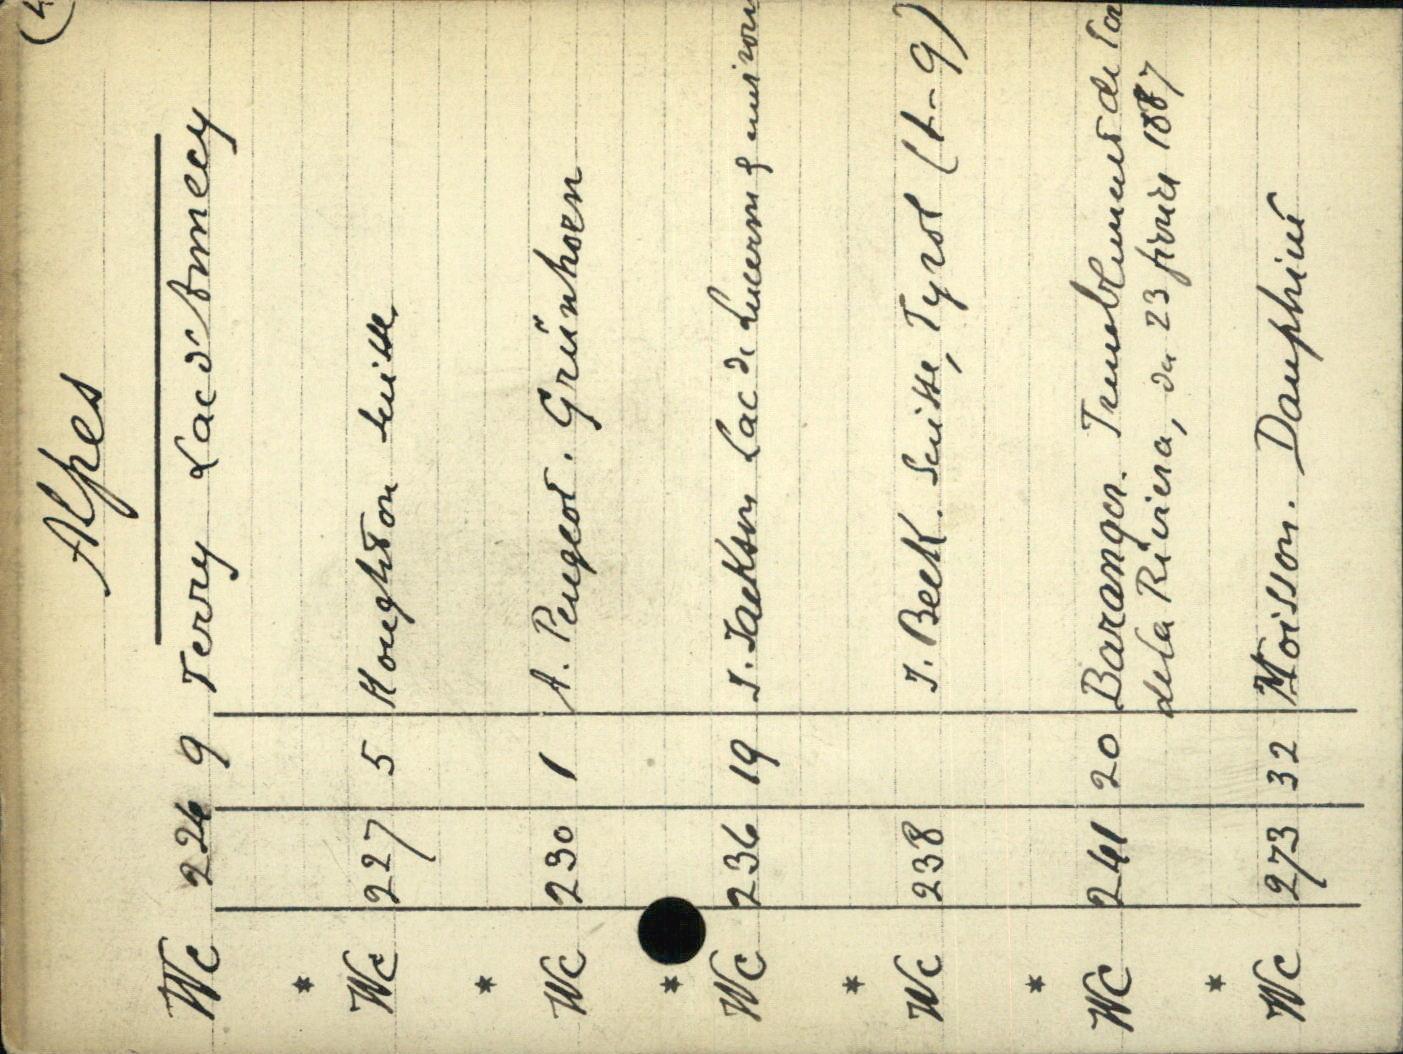 (4
Alpes
Wc 224 9 Terry Lac d'Annecy
*
Wc 227 5 Houghton Suisse
*
Wc 230 1 A. Peugeot. Grünhorn
*
Wc 236 19 J. Jackson Lac de Lucerne & environ
*
Wc 238 J. Beck. Suisse, Tyrol (1-9)
*
Wc 241 20 Baranger. Tremblement de Ter
de la Riviera, du 23 février 1887
*
Wc 273 32 Moisson. Dauphiné